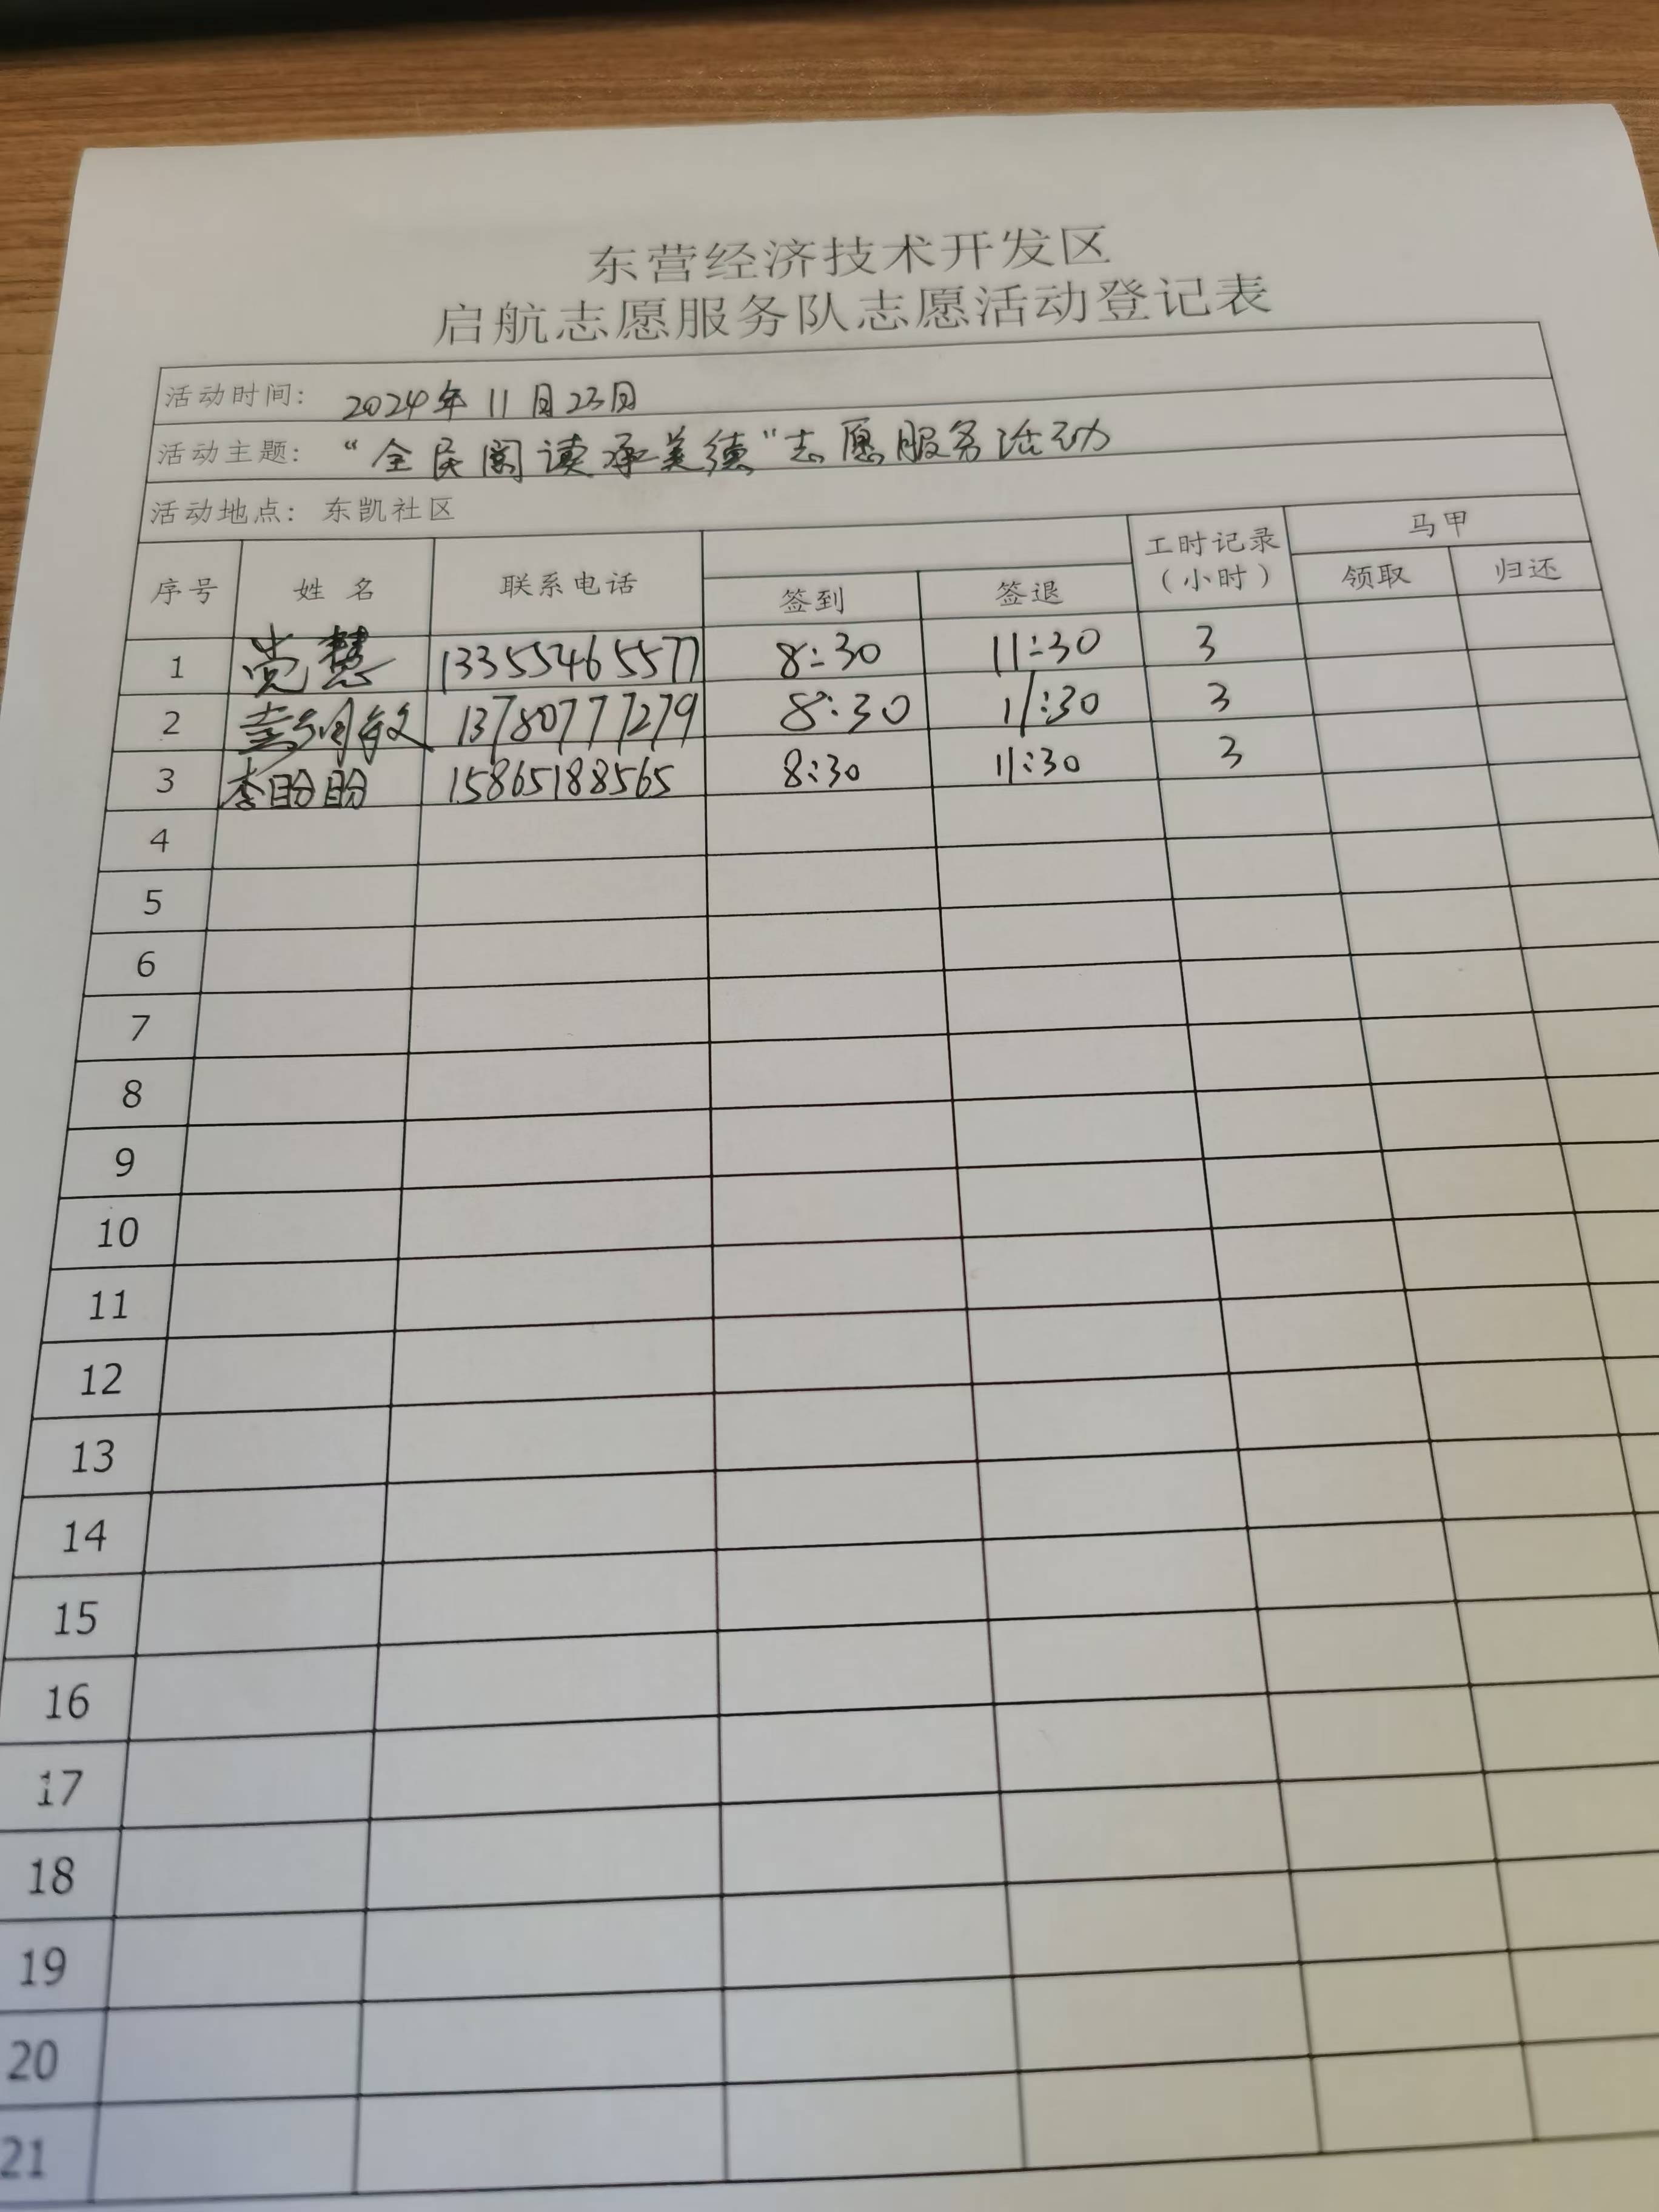 东营经济技术开发区
启航志愿服务队志愿活动登记表
活动时间: 2024年11月23日
活动主题: “全民阅读承美德”志愿服务活动
活动地点: 东凯社区
序号 姓名 联系电话 签到 签退 工时记录(小时) 马甲 领取 归还
1 尚慧 13355465577 8:30 11:30 3
2 13780777279 8:30 11:30 3
3 李盼盼 15865188565 8:30 11:30 3
4
5
6
7
8
9
10
11
12
13
14
15
16
17
18
19
20
21